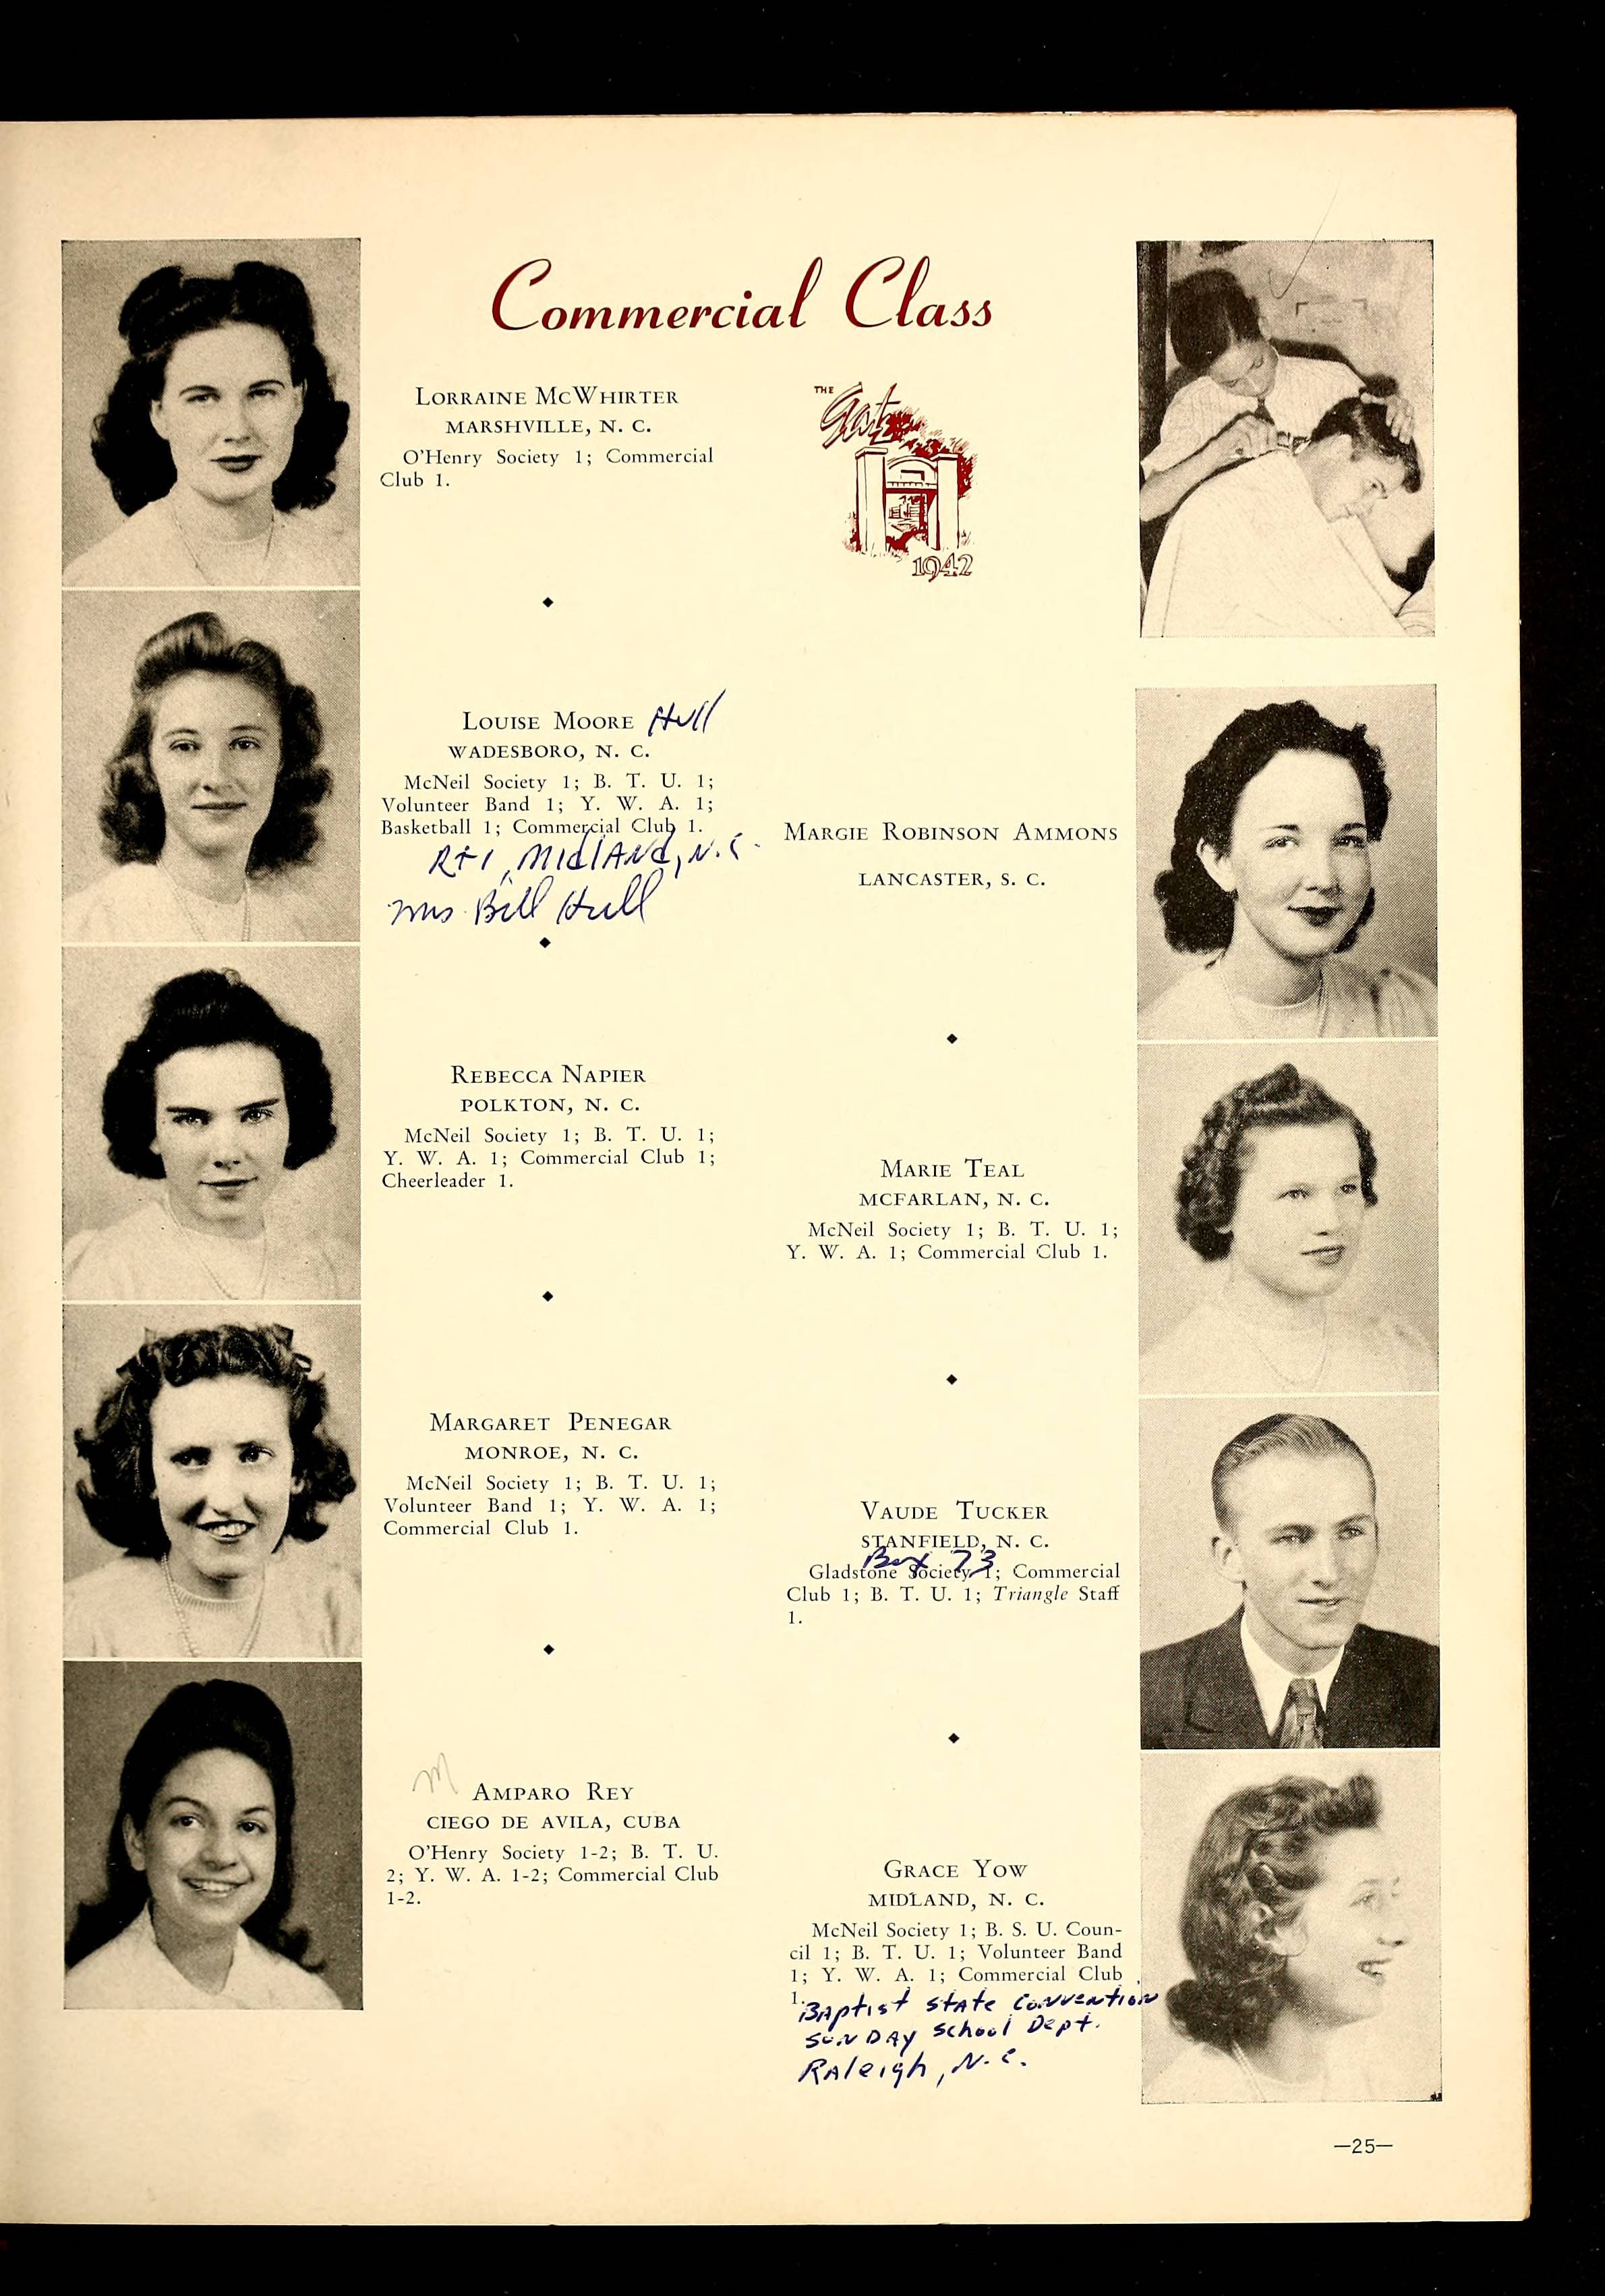 Commercial Class
LORRAINE MCWHIRTER
MARSHVILLE, N. C.
O'Henry Society 1; Commercial
Club 1.
THE
Gates
1942
LOUISE MOORE Hull
WADESBORO, N. C.
McNeil Society 1; B. T. U. 1;
Volunteer Band 1; Y. W. A. 1;
Basketball 1; Commercial Club 1.
Rt 1, Midland, N.C.
Mrs. Bill Hull
REBECCA NAPIER
POLKTON, N. C.
McNeil Society 1; B. T. U. 1;
Y. W. A. 1; Commercial Club 1;
Cheerleader 1.
MARGARET PENEGAR
MONROE, N. C.
McNeil Society 1; B. T. U. 1;
Volunteer Band 1; Y. W. A. 1;
Commercial Club 1.
M
AMPARO REY
CIEGO DE AVILA, CUBA
O'Henry Society 1-2; B. T. U.
2; Y. W. A. 1-2; Commercial Club
1-2.
MARGIE ROBINSON AMMONS
LANCASTER, S. C.
MARIE TEAL
MCFARLAN, N. C.
McNeil Society 1; B. T. U. 1;
Y. W. A. 1; Commercial Club 1.
VAUDE TUCKER
STANFIELD, N. C.
Box 73
Gladstone Society 1; Commercial
Club 1; B. T. U. 1; Triangle Staff
1.
GRACE YOW
MIDLAND, N. C.
McNeil Society 1; B. S. U. Coun-
cil 1; B. T. U. 1; Volunteer Band
1; Y. W. A. 1; Commercial Club
1.
Baptist State Convention
Sunday School Dept.
Raleigh, N.C.
—25—